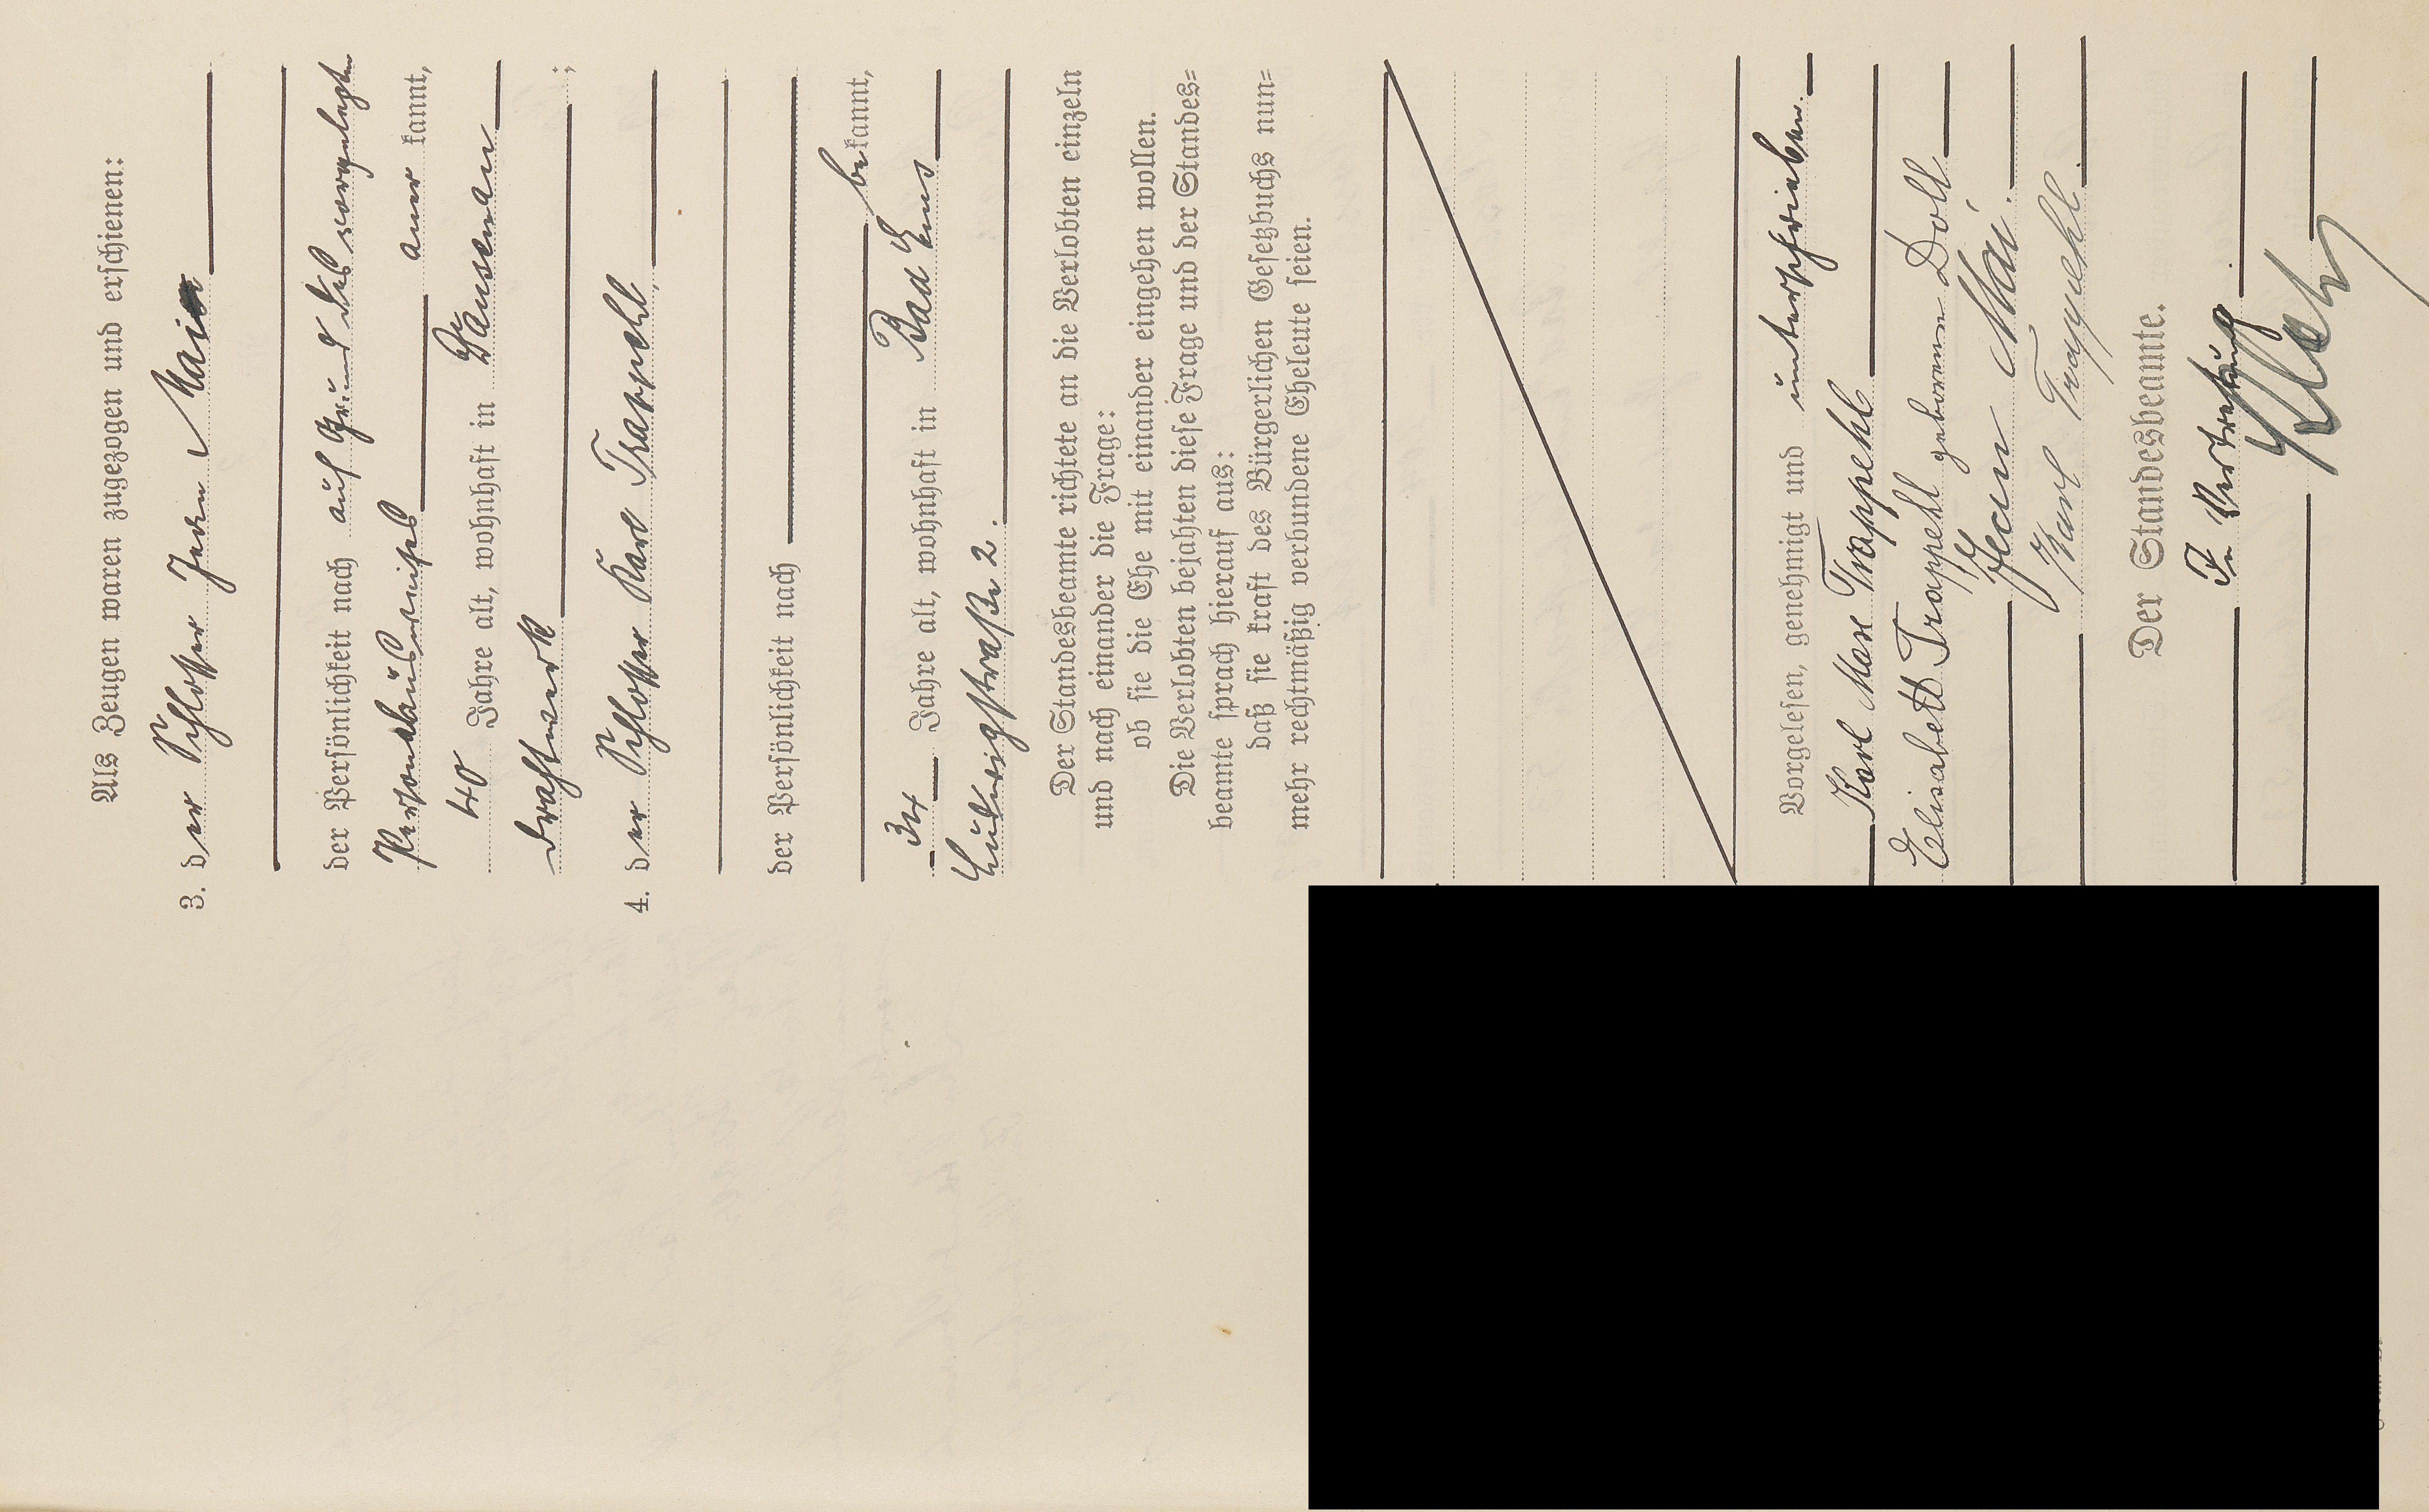 Als Zeugen waren zugezogen und erschienen:
3. der Schlosser Jean Mai
der Persönlichkeit nach auf Grund des vorgelegten
Personalausweises aner kannt,
40 Jahre alt, wohnhaft in Dausenau
Drahtwerk ;
4. der Schlosser Karl Trappehl,
der Persönlichkeit nach
bekannt,
34 Jahre alt, wohnhaft in Bad Ems
Ludwigstraße 2.
Der Standesbeamte richtete an die Verlobten einzeln
und nach einander die Frage:
ob sie die Ehe mit einander eingehen wollen.
Die Verlobten bejahten diese Frage und der Standes=
beamte sprach hierauf aus:
daß sie kraft des Bürgerlichen Gesetzbuchs nun=
mehr rechtmäßig verbundene Eheleute seien.
Vorgelesen, genehmigt und unterschrieben.
Karl Max Trappehl
Elisabeth Trappehl geborenen Doll
Jean Mai.
Karl Trappehl.
Der Standesbeamte.
In Vertretung